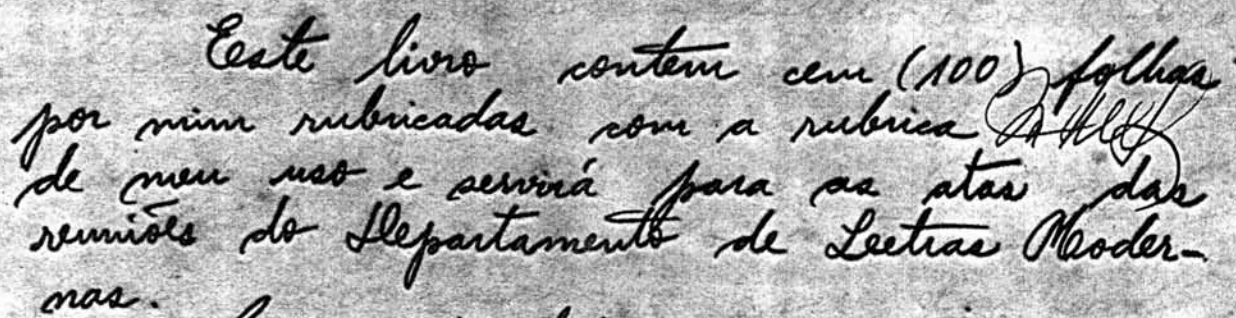 Este livro contem cem (100) folhas
por mim rubricadas com a rubrica
de meu uso e servirá para as atas das
reuniões do Departamento de Letras Moder-
nas.